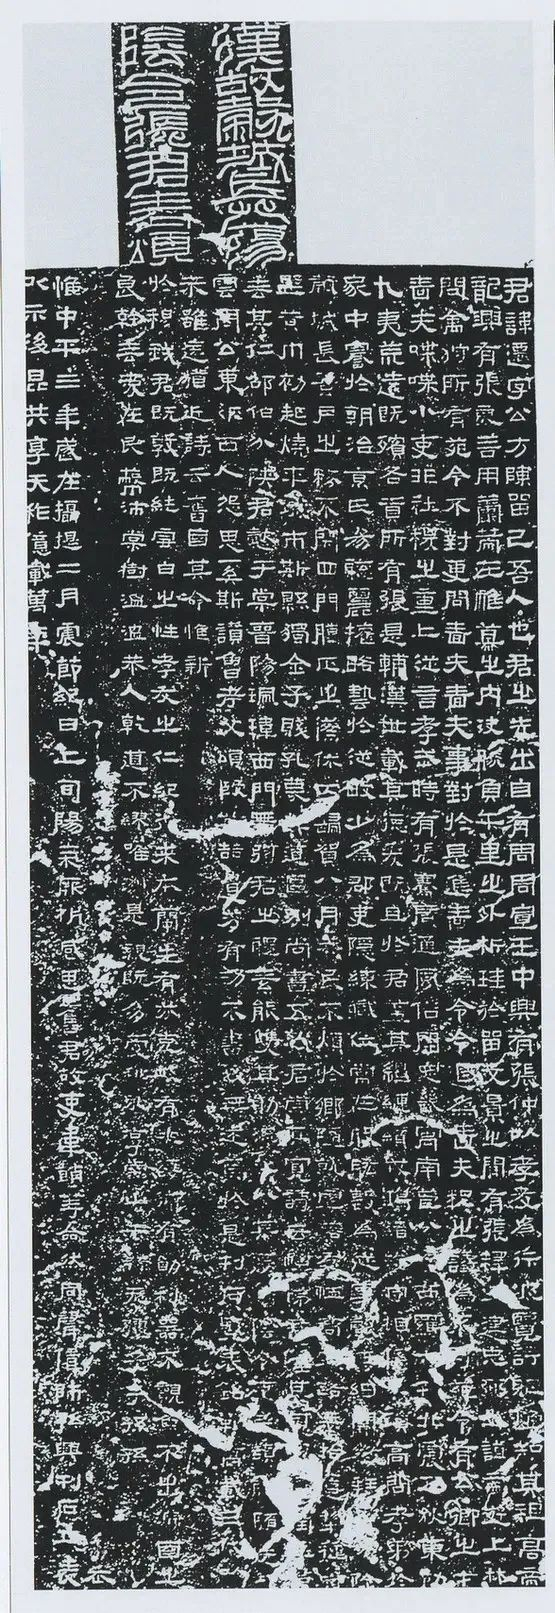 漢故穀城長蕩
陰令張君表頌
君諱遷字公方陳留己吾人也君之先出自有周周宣王中興有張仲以孝友為行披覽詩雅煥知其祖高帝
龍興有張良善用籌策在帷幕之內決勝負千里之外析珪於留文景之間有張釋之建忠弼之謨帝遊上林
問禽狩所有苑令不對更問嗇夫嗇夫事對於是進嗇夫為令令退為嗇夫釋之議為不可苑令有公卿之才
嗇夫喋喋小吏非社稷之重上從言孝武時有張騫廣通風俗開定畿寓南苞八蠻西羈六戎北震五狄東勤
九夷荒遠既殯各貢所有張是輔漢世載其德爰既且於君蓋其繵縺纘戎鴻緒牧守相係不殞高問孝弟於
家中謇於朝治京氏易聰麗權略藝於從畋少為郡吏隱練職位常在股肱數為從事聲無細聞徵拜郎中除
穀城長蠶月之務不閉四門臘正之祭休囚歸賀八月筭民不煩於鄉隨就虛落存恤高年路無拾遺犂種宿
野黃巾初起燒平城市斯縣獨全子賤孔蔑其道區別尚書五教君崇其寬詩云愷悌君隆其恩東里潤色君
垂其仁邵伯分陝君懿于棠晉陽珮瑋西門帶弦君之體素能雙其勛流化八基遷蕩陰令吏民頡頏隨送如
雲周公東征西人怨思奚斯讚魯考父頌殷前喆遺芳有功不書後無述焉於是刊石豎表銘勒萬載三代以
來雖遠猶近詩云舊國其命惟新
於穆我君既敦既純雪白之性孝友之仁紀行來本蘭生有芬克岐有兆綏御有勛利器不覿魚不出淵國之
良幹垂愛在民蔽沛棠樹溫溫恭人乾道不繆唯淑是親既多受祉永享南山干祿無疆子子孫孫
惟中平三年歲在攝提二月震節紀日上旬陽氣厥析感思舊君故吏韋萌等僉然同聲賃師孫興刊石立表
以示後昆共享天祚億載萬年